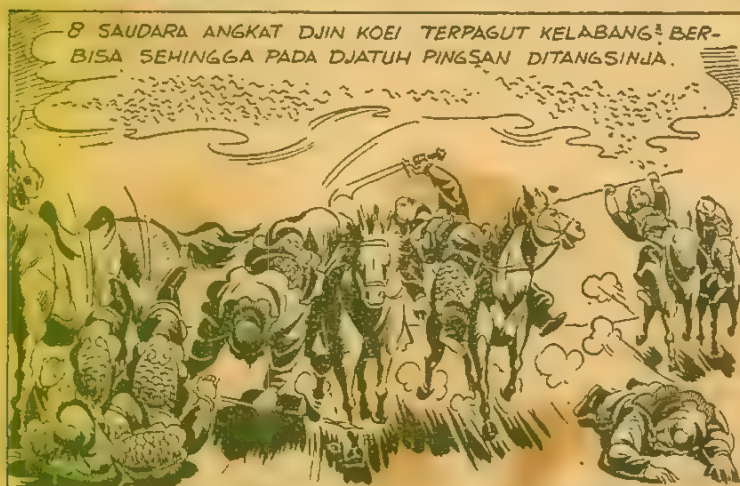 8 SAUDARA ANGKAT DJIN KOEI TERPAGUT KELABANG² BER-
BISA SEHINGGA PADA DJATUH PINGSAN DITANGSINJA.